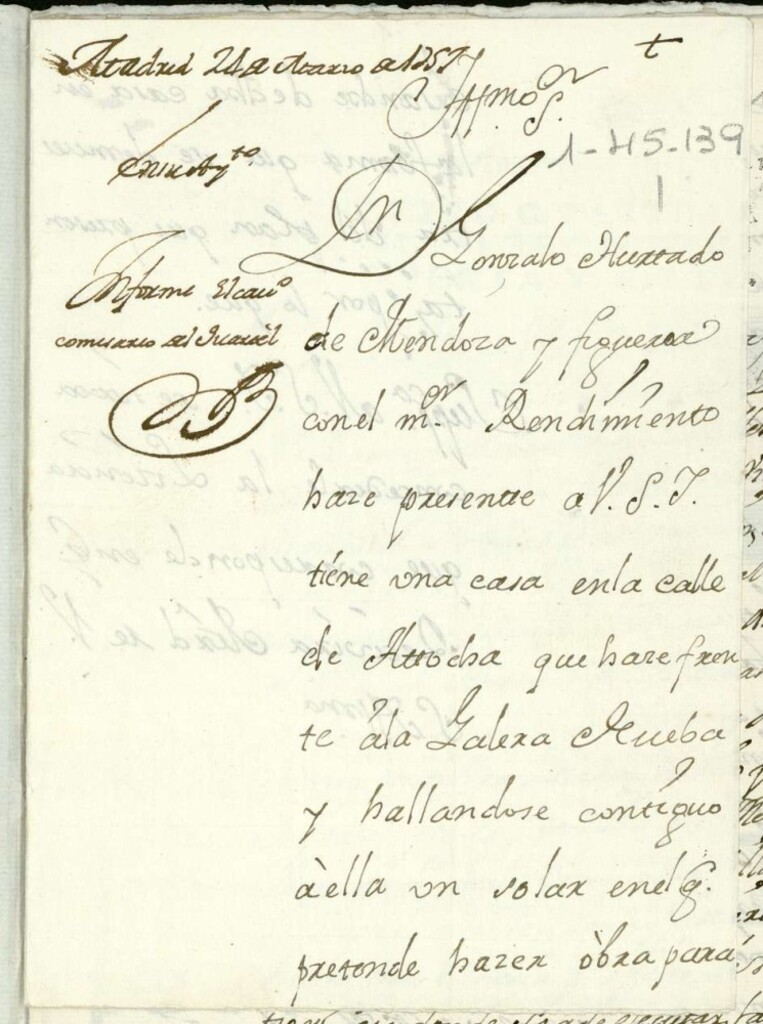 Madrid 21 de Marzo de 1757
t
Yllmo Sr.
1-45-139
1
En su Aytto.
Informe el cavo
comisario del Quartel
Dn Gonzalo Hurtado
de Mendoza y figueroa
con el mr. Rendimiento
haze presente a V. S. I.
tiene una casa en la calle
de Attocha que haze fren
te â la Galera Nueba
y hallandose contiguo
à ella un solar en el q.
pretende hazer òbra para